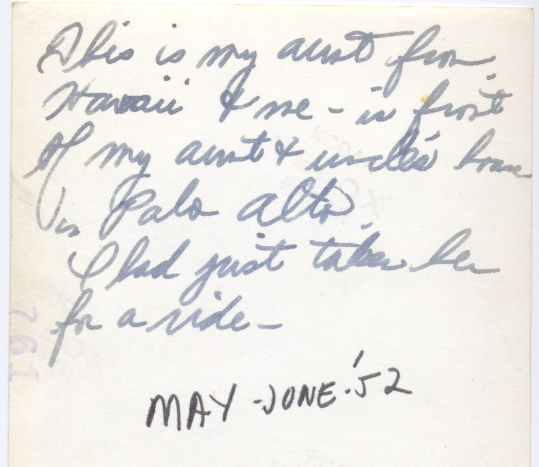 This is my aunt from
Hawaii & me - in front
Of my aunt & uncle's house
in Palo Alto.
I had just taken her
for a ride -
MAY - JUNE '52
197